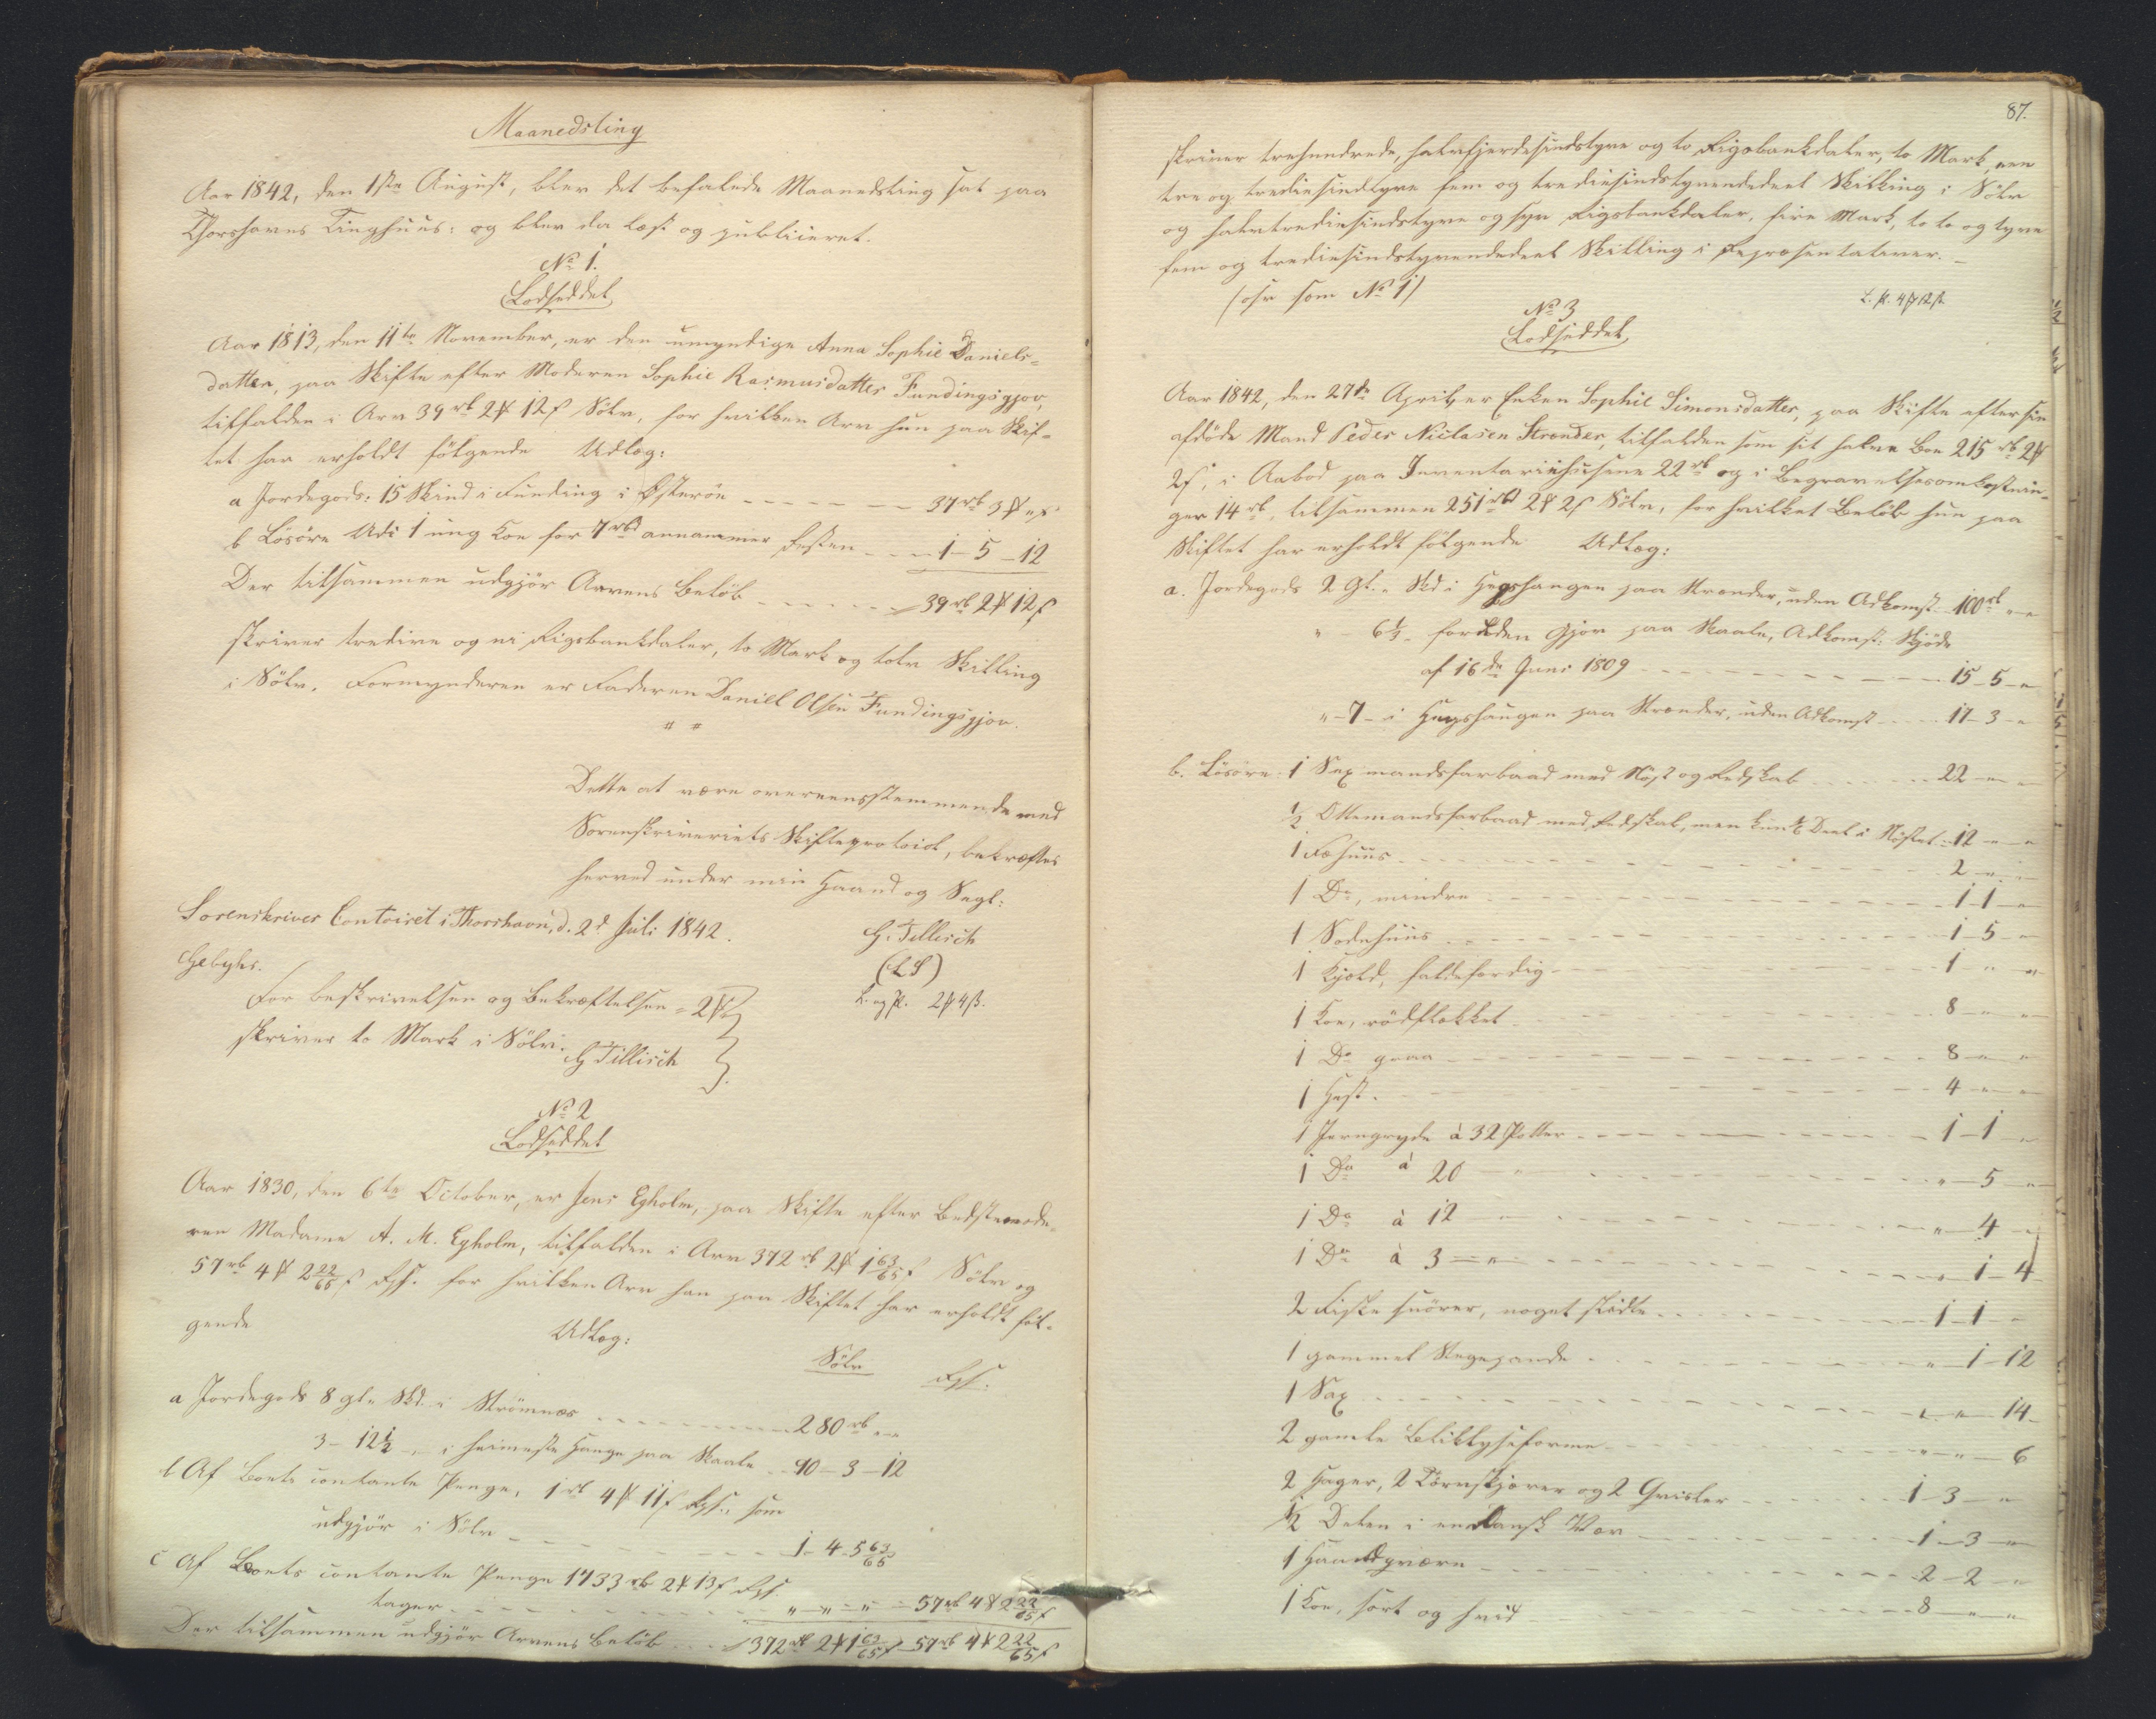 Maanedsting
Aar 1842, den 1ste August, blev det befalede Maanedsting sat paa
Thorshavns Tinghuus: og blev da læst og publiceret.
No 1.
Lodseddel
Aar 1813, den 11te November, er den umyndige Anna Sophie Daniels-
datter, paa Skifte efter Moderen Sophie Rasmusdatter Fundingsgjov,
tilfalden i Arv 39 rb 2 # 12 s Sölv, for hvilken Arv hun paa Skif-
tet har erholdt følgende Udlæg:
a Jordegods: 15 Skind i Funding i Østerøe - - - 37 rb 3 # " s
b Lösöre Udi 1 ung Koe for 7 rbd annammer Resten - - 1 - 5 - 12
Der tilsammen udgjör Arvens Belöb - - - 39 rb 2 # 12 s
skriver tredive og ni Rigsbankdaler, to Mark og tolv Skilling
i Sölv. Formynderen er Faderen Daniel Olsen Fundingsgjov.
" "
Dette at være overeensstemmende med
Sorenskriveriets Skifteprotocol, bekræftes
herved under min Haand og Segl:
Sorenskriver Contoiret i Thorshavn, d. 2d Juli 1842.
H: Tillisch
Gebyhr.
(LS)
For Beskrivelsen og Bekræftelsen = 2 #
L. og p. 2 # 4 ß.
skriver to Mark i Sölv.
H Tillisch
No 2
Lodseddel
Aar 1830, den 6te October, er Jens Egholm, paa Skifte efter Bedstemode-
ren Madame A. M. Egholm, tilfalden i Arv 372 rb 2 # 1 63/65 s Sölv og
57 rb 4 # 2 22/65 s Rps. for hvilken Arv han paa Skiftet har erholdt föl-
gende Udlæg:
Sölv Rps.
a Jordegods 8 gl. " Skd. i Strömnæs - - - 280 rb " "
3 - 12 1/2 - " i heimeste Hauge paa Skaale - - 90 - 3 - 12
b Af Boets contante Penge, 1 rb 4 # 11 s Rps., som
udgjör i Sölv - - - 1 - 4 - 5 63/65
c Af Boets contante Penge 1733 rb 2 # 13 s Rps.
tages - - - " - " - " - 57 rb 4 # 2 22/65 s
Der tilsammen udgjör Arvens Belöb - - - 372 rb 2 # 1 63/65 s - 57 rb 4 # 2 22/65 s
87.
skriver trehundrede, halvfjerdesindstyve og to Rigsbankdaler, to Mark, een
tre og trediesindstyve fem og trediesindstyvendedeel Skilling i Sölv
og halvtrediesindstyve og syv Rigsbankdaler, fire Mark, to to og tyve
fem og trediesindstyvendedeel Skilling i Repræsentativer. -
(osv som No 1)
L. p. 4 # 12 ß
No 3
Lodseddel
Aar 1842, den 27de April, er Enken Sophie Simonsdatter, paa Skifte efter sin
afdöde Mand Peder Niclasen Strender, tilfalden som sit halve Boe 215 rb 2 #
2 s, i Aabod paa Inventariihusene 22 rb og i Begravelsesomkostnin-
ger 14 rb, tilsammen 251 rbd 2 # 2 s Sölv, for hvilket Belöb hun paa
Skiftet har erholdt følgende Udlæg:
a. Jordegods 2 Gl. " Skd i Hegshaugen paa Strender, uden Adkomst - 100 rb " "
" - 6 1/3 - forudden Gjov paa Skaale, Adkomst: Skjöde
af 16de Juni 1809 - - - 15 - 5 - "
" - 7 - i Hegshaugen paa Strender, uden Adkomst - - 17 - 3 - "
b. Lösöre 1 Sexmandsfarbaad med Nöst og Redskab - - - 22 - " - "
1/2 Ottemandsfarbaad med Redskab, men kun 1/6 Deel i Nöstet - 12 - " - "
1 Fæhuus - - - 2 - " - "
1 Do, mindre - - - 1 - 1 - "
1 Sodehuus - - - 1 - 5 - "
1 Kjæld, faldefærdig - - - 1 - " - "
1 Koe, rödflækket - - - 8 - " - "
1 Do graa - - - 8 - " - "
1 Hest. - - - 4 - " - "
1 Jerngryde à 32 Potter - - - 1 - 1 - "
1 Do à 20 - " - - - " - 5 - "
1 Do à 12 " - - - " - 4 - "
1 Do à 3 = " - - - " - 1 - 4
2 Fiske snörer, noget slidte - - - 1 - 1 - "
1 gammel Stegepande - - - " - 1 - 12
1 Sax - - - " - " - 14
2 gamle Beliklyseforme - - - " - " - 6
2 Hager, 2 Törvskjærer og 2 Grisler - - - 1 - 3 - "
1/2 Delen i en dansk Væv - - - 1 - 3 - "
1 Haandqværn - - - 2 - 2 - "
1 Koe, sort og hvid - - - 8 - " - "